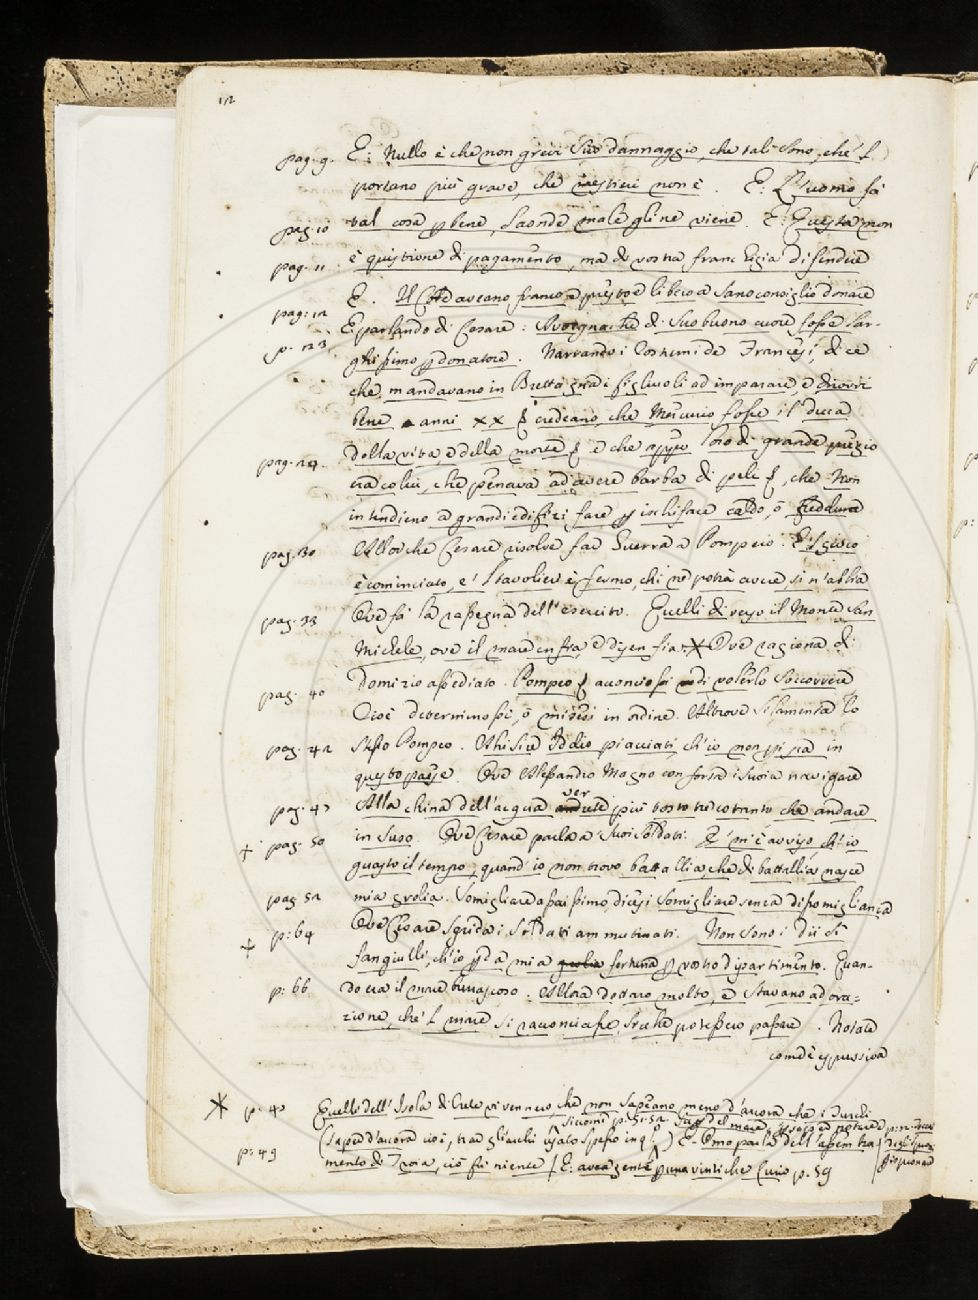 12
pag. 9. E: Nullo è che non grevi suo dannaggio, che tali sono, che 'l
portano più grave, che mestieri non è. E: L'uomo fà
pag. 10 tal cosa p bene, laonde male gli ne viene E: Questa non
pag. 11 è quistione di pagamento, ma di vostra franchigia difendere
pag: 12 E. Il Conte aveano franco, e presto e libero e sano consiglio donare
p. 123 E parlando di Cesare: di suo buono cuore fosse lar-
ghissimo donatore. Narrando i Costumi de Francesi, di ce
che mandavano in Brettogna i figliuoli ad imparare, e
bene anni xx credeano, che Mercurio fosse il duca
pag. 24. della vita, e della morte e che appo loro di grande pregio
era colui, che penava ad avere barba di peli, che Non
intendieno a grandi edifizi fare p ischifare caldo, o freddura
pag. 30 Allorche Cesare risolve far Guerra a Pompeio. Il giuoco
è cominciato, e'l tavoliere è fermo, chi ne potrà avere si n'abbia
pag. 33 Ove fà la rassegna dell'esercito. Quelli di verso il Monte San
Michele, ove il mare enfra, e disenfia. Ove ragiona di
pag. 40 Domizio assediato. Pompeo acconciossi di volerlo Soccorrere
Cioè determinossi, o misesi in ordine. Altrove si lamenta lo
pag. 42 stesso Pompeo. Ahi sire Iddio, piacciati, ch'io non pera in
questo paese. Ove Alessandro Magno con forza i suoi navigare
pag. 47 Alla china dell'acqua ver più tosto tre cotanto che andare
+ pag. 50 in suso. Ove Cesare parla a suoi Soldati. E m'è avviso, ch'io
guasto il tempo, quand'io non trovo battallia, che di battallia nasce
pag 52 mia grolia. Somigliare assaissimo, dicesi somigliare senza dissomiglianza
+ p: 64 Ove Cesare sgrida i Soldati ammutinati. Non sono i dii sì
fanciulli, ch'io pda mia fortuna p vostro dipartimento. Quan-
p: 66 do era il mare burrascoso. Allora dottaro molto, e stavano ad ora-
zione, che 'l mare si racconciasse, sicche potessero passare. Notate
com'è espressiva
p. 40 Quelli dell'Isola di Creti vi vennero, che non sapeano meno d'arcora che i Turchi
(saper d'arcora cioè, trar gli archi E. Omo parla dell'assembra
p: 49 mento di Troia, ciò fu niente E: avea gente p una vinti che Curio p. 59